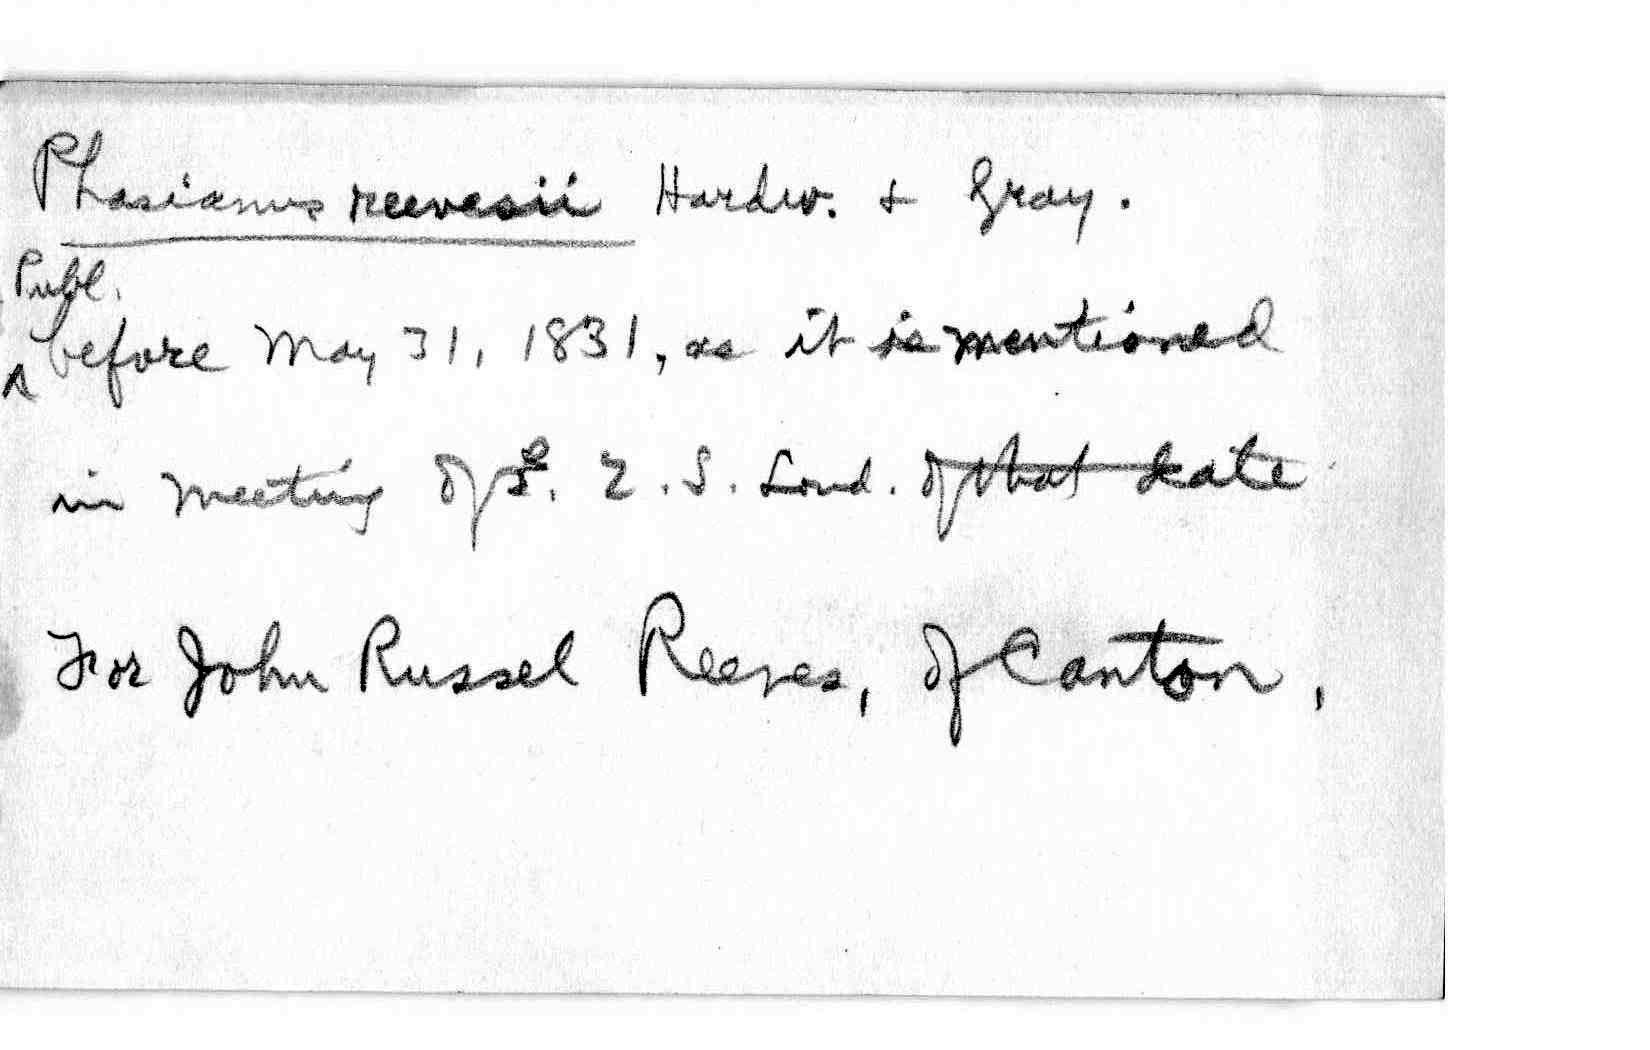 Phasianus reevesii Hardw. & Gray.
Publ.
^ before May 31, 1831, as it is mentioned
in meeting of Z. S. Lond. of that date
For John Russel Reeves, of Canton,